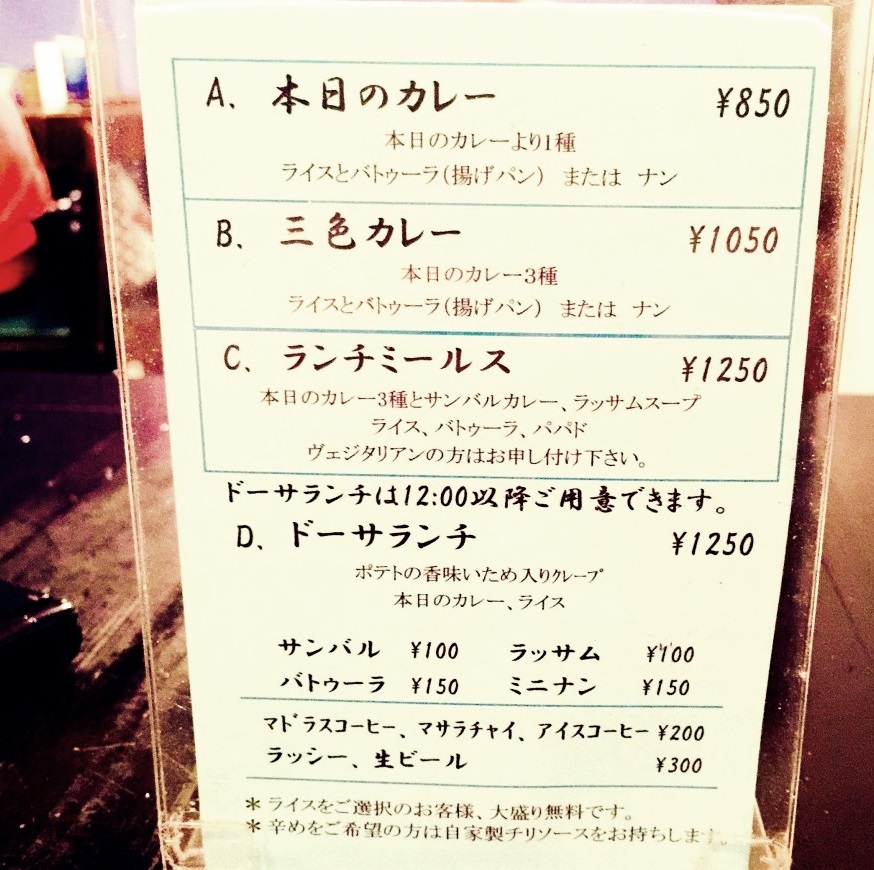 A. 本日のカレー ¥850
本日のカレーより1種
ライスとバトゥーラ(揚げパン) または ナン
B. 三色カレー ¥1050
本日のカレー3種
ライスとバトゥーラ(揚げパン) または ナン
C. ランチミールス ¥1250
本日のカレー3種とサンバルカレー、ラッサムスープ
ライス、バトゥーラ、パパド
ヴェジタリアンの方はお申し付け下さい。
ドーサランチは12:00以降ご用意できます。
D. ドーサランチ ¥1250
ポテトの香味いため入りクレープ
本日のカレー、ライス
サンバル ¥100 ラッサム ¥100
バトゥーラ ¥150 ミニナン ¥150
マドラスコーヒー、マサラチャイ、アイスコーヒー ¥200
ラッシー、生ビール ¥300
＊ライスをご選択のお客様、大盛り無料です。
＊辛めをご希望の方は自家製チリソースをお持ちします。